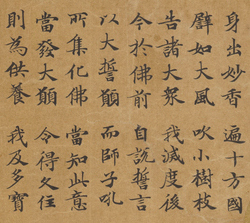 身出妙香 遍十方國
譬如大風 吹小樹枝
告諸大眾 我滅度後
今於佛前 自說誓言
以大誓願 而師子吼
所集化佛 當知此意
當發大願 令得久住
則為供養 我及多寶